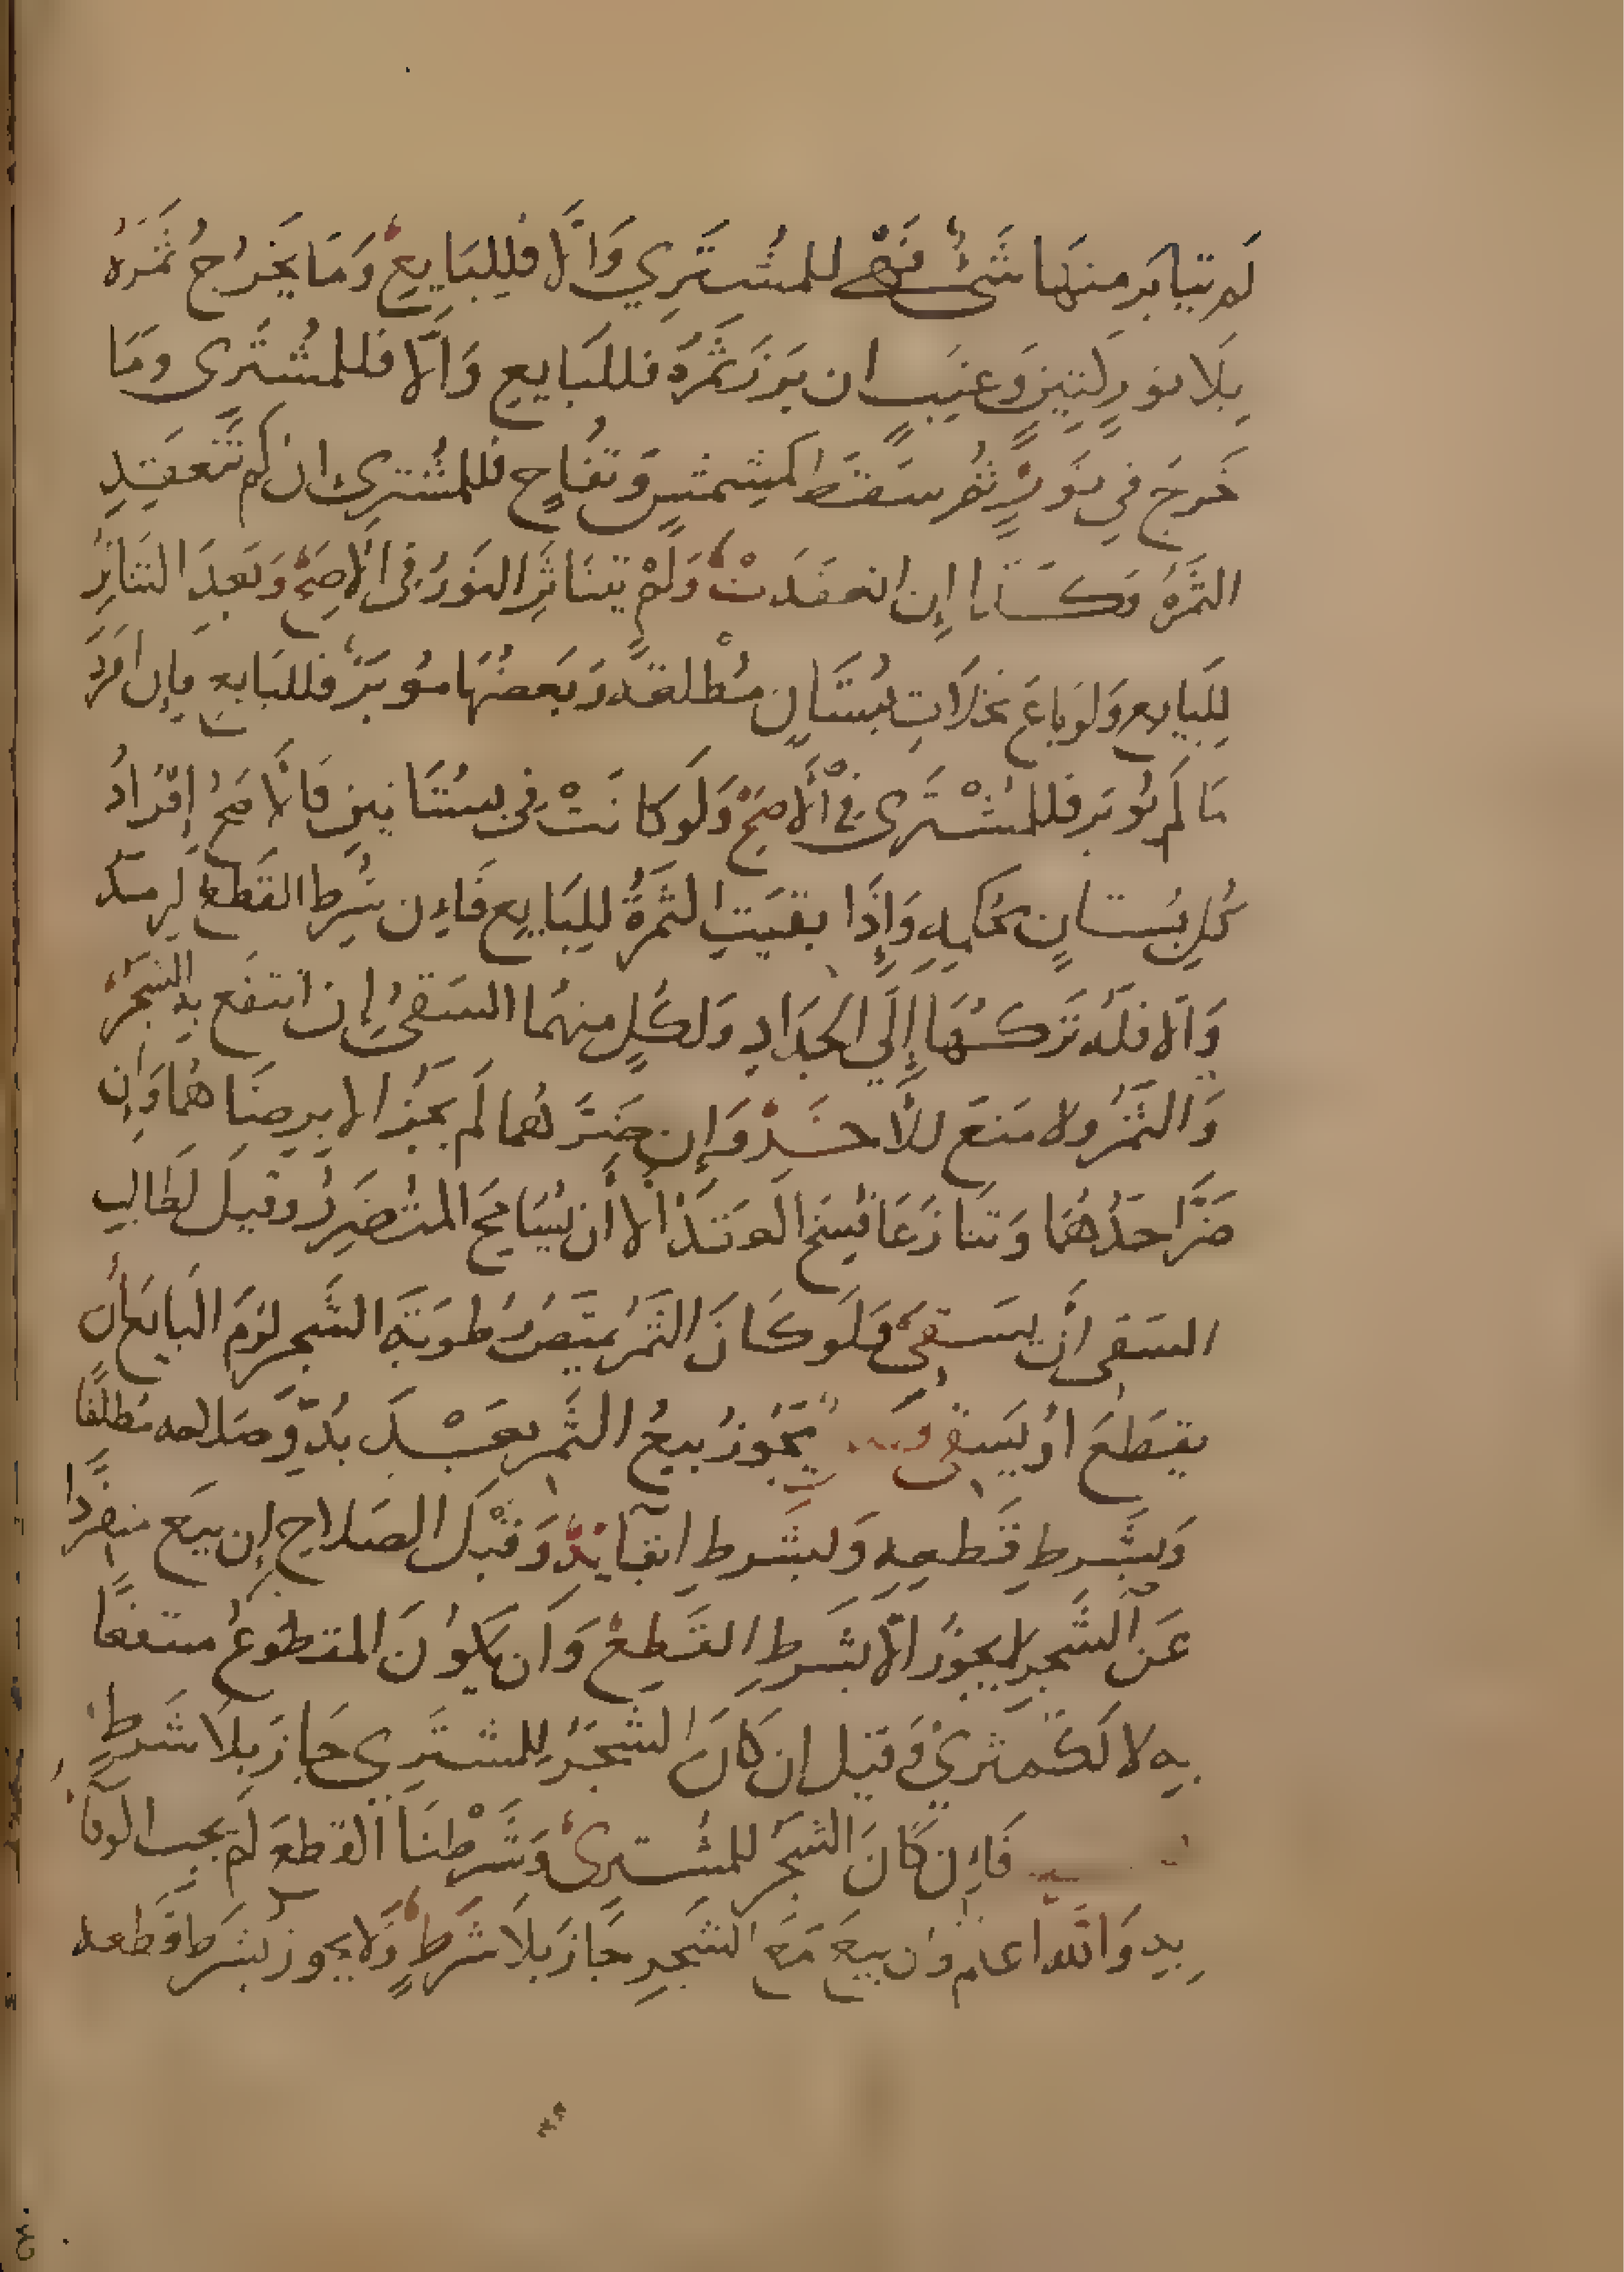 لم تتابر منها شئ فهي للمشتري وَإلا فللبايع وَمَا يخرج ثمَرُه
بِلَا نور كتينٍ وَعنَبٍ ان برَزَ ثمره فللبَايع وَالا فللمشترى ومَا
خرجَ في نَورٍ ثم سقط كمشمشٍ وَتفاحٍ فللمشترى ان لم تنعقد
الثمرَةُ وَكَذَا إن انعقدَت وَلم يتناثر النورُ في الاصح وَبَعدَ التناثر
للبَايع وَلو باعَ نخلَات بُستَانٍ مُطْلعَة وَبَعضُهَا موبَّر فللبَايع فإن افرد
مَا لم يُوبر فللمشْتَرى في الْأصح وَلَو كانَتْ في بستانين فالاصح إفراد
كل بُستانٍ بحُكمِه وَإِذَا بقيَت الثمرَةُ للبَايع فَإن شرط القطع لزمه
وَالا فلَه تَركُهَا إلَى الجدَاد وَلكلٍ منهُما السَقى إن انتفع به الشجَر
وَالثمَرُ ولا منعَ للآخَر وَإن ضرَّهُما لَم يَجُز الا برضَاهُما وَإن
ضرَّ احدَهُمَا وَتنَازَعَا فسخ العَقد الا أن يُسَامح المتضرر وقيل لطالب
السَقى أن يسقى وَلَو كَانَ الثمَرُ يمتَصُ رُطوبَةَ الشجر لزمَ البايع أن
يقطَعَ اوْ يسقى يجُوزُ بَيعُ الثمر بَعْدَ بُدوِّ صَلاحه مُطلقًا
وَبشَرط قَطعِه وَبشَرطِ ابقَائهِ وَقَبْل الصلاح إن بيعَ منفردًا
عَن الشجر لا يجوزُ الا بشَرط القَطعْ وَأن يكوُنَ المقطوعُ منتفعًا
به لا ككُمثري وَقيل ان كانَ الشجَرُ للمشتَري جَازَ بلَا شَرطٍ
فَإن كانَ الشجَر للمشترى وَشَرطنَا القطعَ لم يجب الوفآ
بِهِ وَالله اعلم وَان بيعَ مَعَ الشجَرِ جَازَ بلَا شَرطٍ وَلا يجوزُ بشرط قطعه